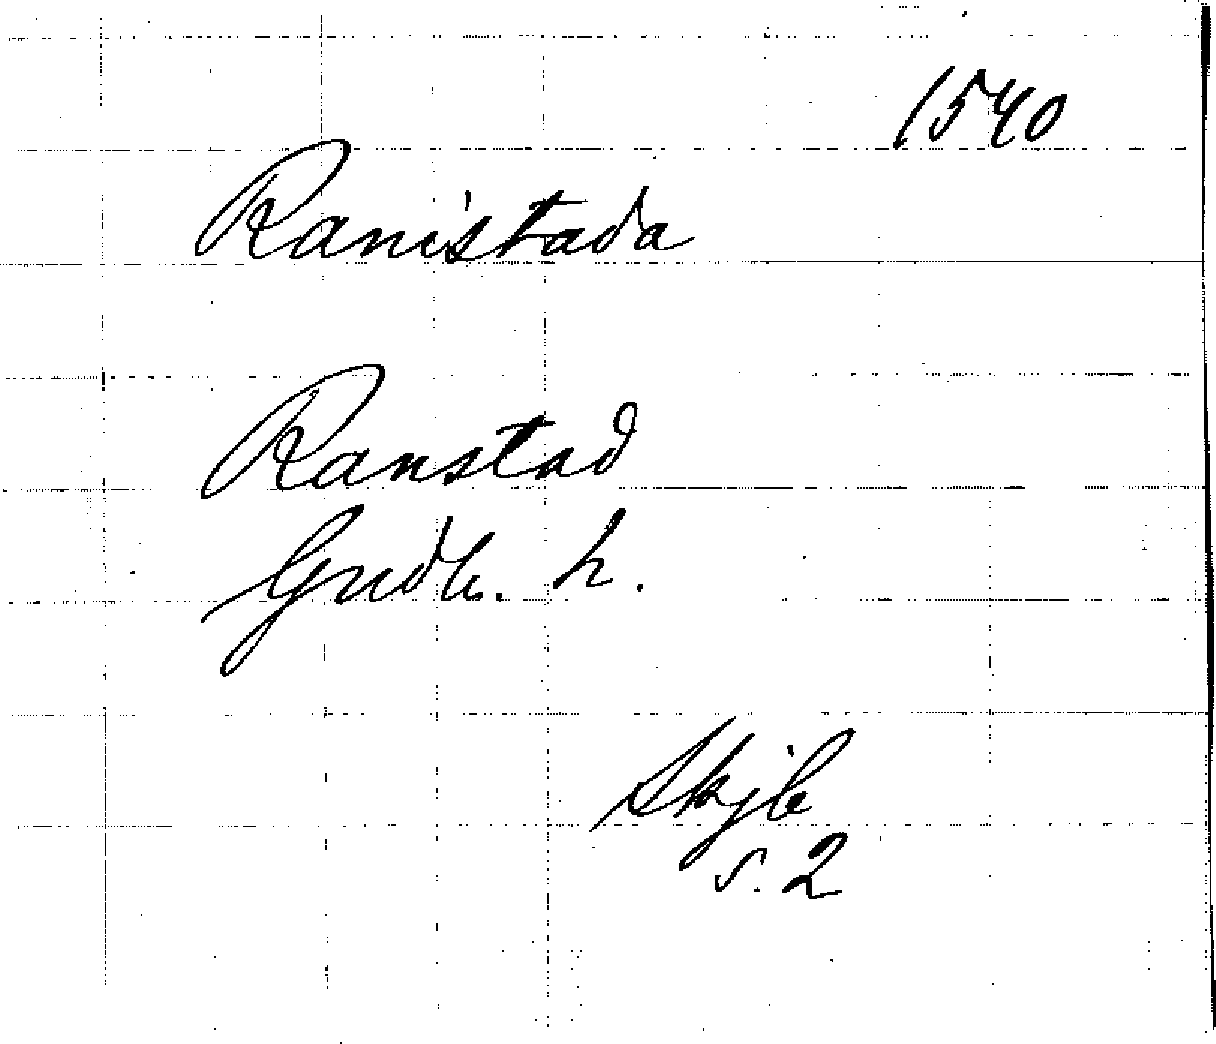 1540
Ranistada
Ranstad
Gudh. h.
Skjb
s. 2